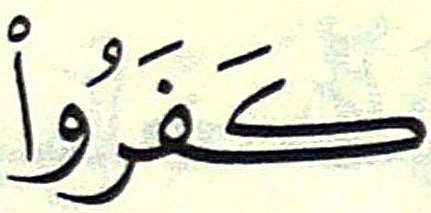 كَفَرُواْ